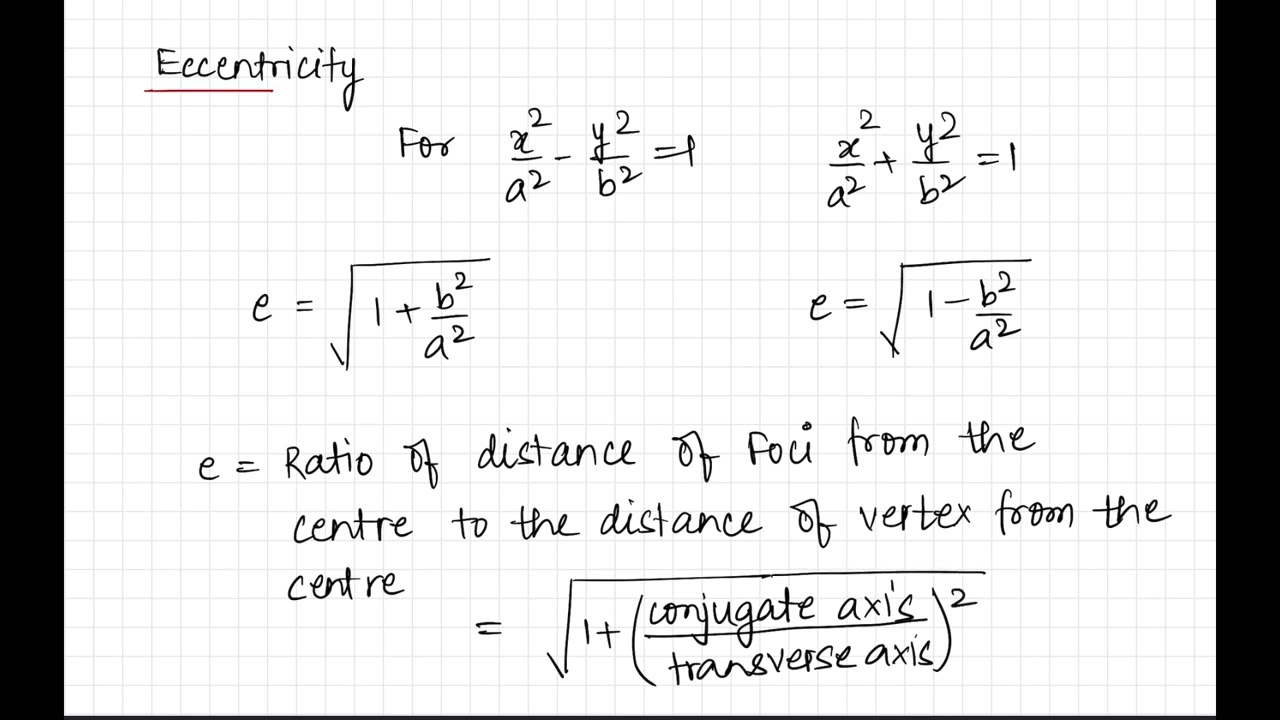 Eccentricity
For x²/a² - y²/b² = 1    x²/a² + y²/b² = 1
e = √(1 + b²/a²)    e = √(1 - b²/a²)
e = Ratio of distance of Foci from the
centre to the distance of vertex from the
centre
= √(1 + (conjugate axis/transverse axis)²)